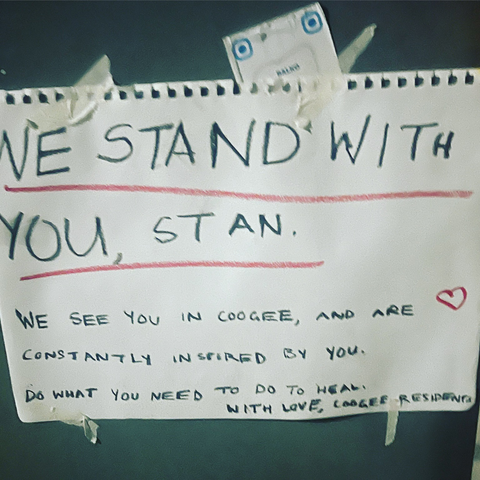 WE STAND WITH
YOU, STAN.
WE SEE YOU IN COOGEE, AND ARE
CONSTANTLY INSPIRED BY YOU.
DO WHAT YOU NEED TO DO TO HEAL.
WITH LOVE, COOGEE RESIDENTS